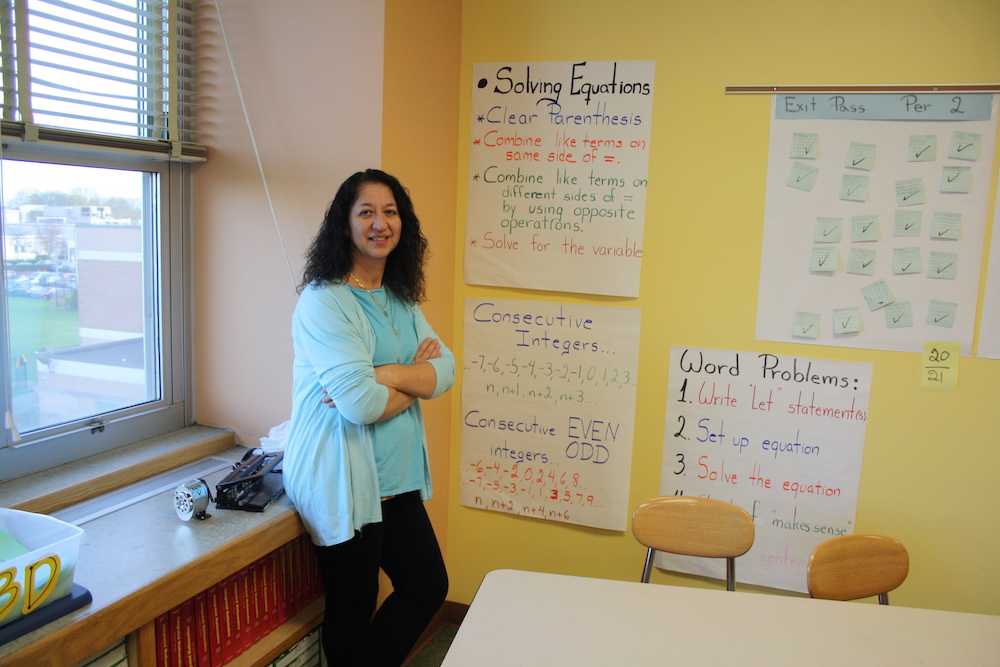 • Solving Equations
* Clear Parenthesis
* Combine like terms on
same side of =.
* Combine like terms on
different sides of =
by using opposite
operatrons.
* Solve for the variable
Consecutive
Integers...
...-7,-6,-5,-4,-3,-2,-1,0,1,2,3...
n, n+1, n+2, n+3...
Consecutive EVEN
ODD
integers...
-6,-4,-2,0,2,4,6,8...
-7,-5,-3,-1,1,3,5,7,9...
n, n+2, n+4, n+6...
Exit Pass Per 2
20
21
Word Problems:
1. Write "Let" statement(s)
2. Set up equation
3. Solve the equation
"makes sense"
sentence
3D